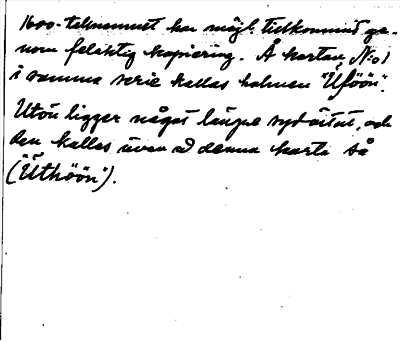 1600-talsnamnet har möjl. tillkommit ge-
nom felaktig kopiering. Å kartan N:o 1
i samma serie kallas holmen "Uföön".
Utön ligger något längre sydösut, och
den kallas även å denna karta så
("Uthöön").